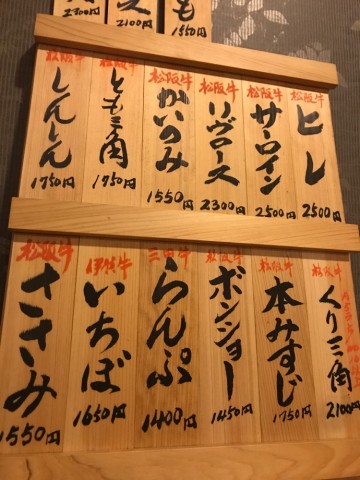 2300円
2100円
も
1550円
松阪牛
ヒレ
2500円
松阪牛
サーロイン
2500円
松阪牛
リヴロース
2300円
松阪牛
かいのみ
1550円
松阪牛
とも三角
1750円
松阪牛
しんしん
1750円
松阪牛
くり三角
2100円
松阪牛
本みすじ
1750円
松阪牛
ボンショー
1450円
三田牛
らんぷ
1400円
伊賀牛
いちぼ
1650円
松阪牛
ささみ
1550円